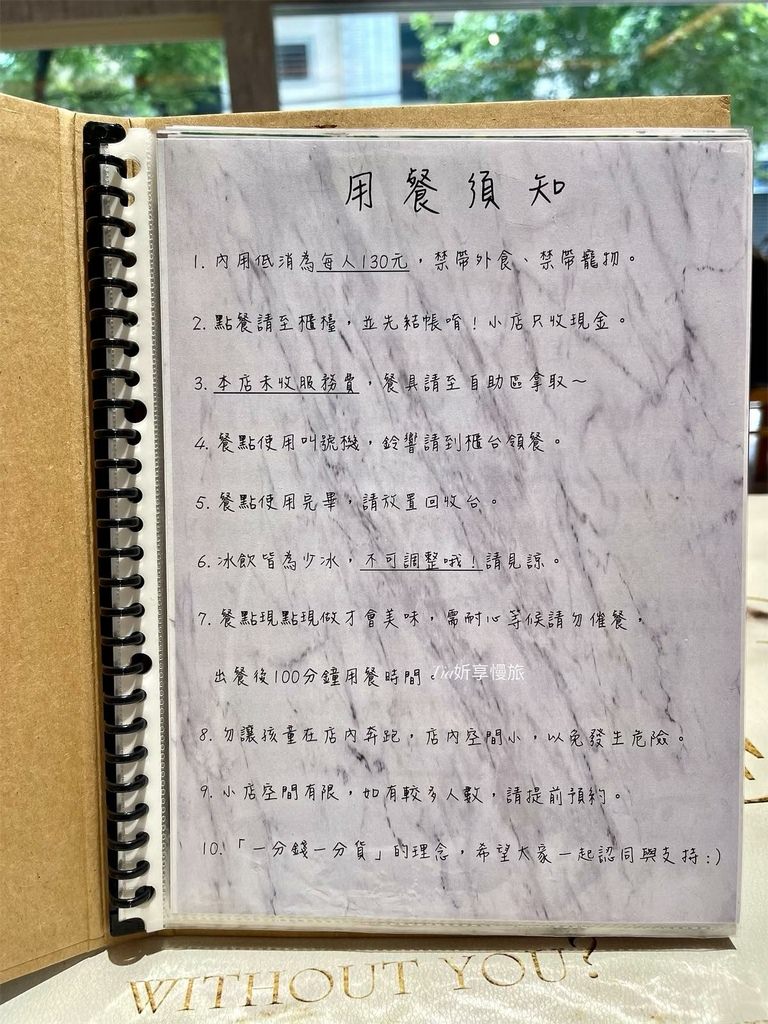 用餐須知
1. 內用低消為每人130元，禁帶外食、禁帶寵物。
2. 點餐請至櫃檯，並先結帳唷！小店只收現金。
3. 本店未收服務費，餐具請至自助區拿取～
4. 餐點使用叫號機，鈴響請到櫃台領餐。
5. 餐點使用完畢，請放置回收台。
6. 冰飲皆為少冰，不可調整哦！請見諒。
7. 餐點現點現做才會美味，需耐心等候請勿催餐，
出餐後100分鐘用餐時間。
Tia妡享慢旅
8. 勿讓孩童在店內奔跑，店內空間小，以免發生危險。
9. 小店空間有限，如有較多人數，請提前預約。
10.「一分錢一分貨」的理念，希望大家一起認同與支持:)
WITHOUT YOU?